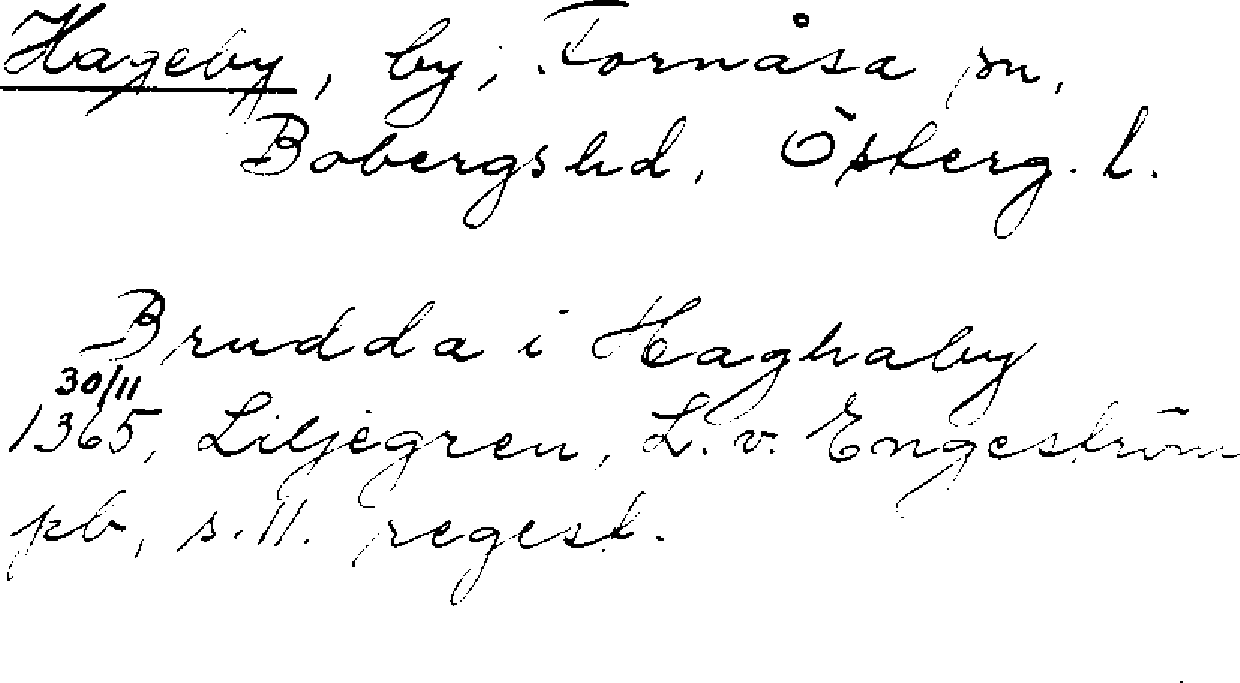 Hageby, by, Fornåsa sn,
Bobergs hd, Österg. l.
Brudda i Haghaby
30/11
1365, Liljegren, L. v. Engeström
pb, s. 11. regest.